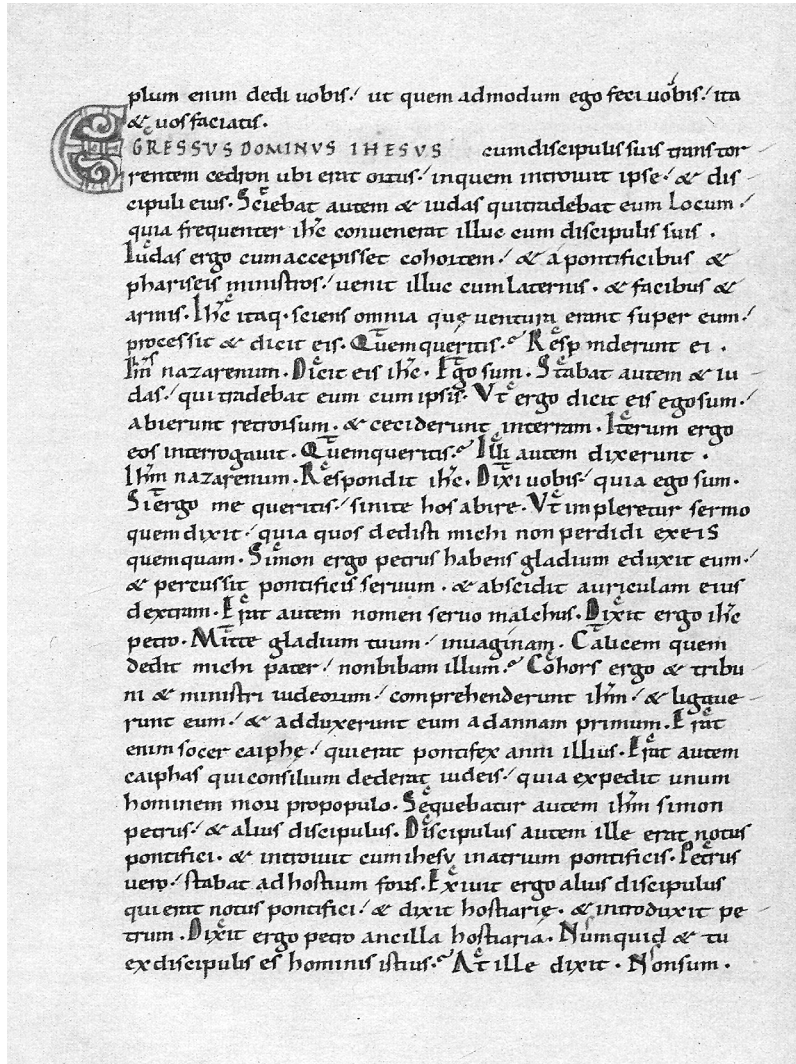 plum enim dedi uobis. ut quem admodum ego feci uobis. ita
& uos faciatis.
EGRESSVS DOMINVS IHESVS cum discipulis suis trans tor
rentem cedron ubi erat ortus. inquem introiuit ipse. & dis
cipuli eius. Sciebat autem & iudas qui tradebat eum Locum.
quia frequenter ihc convenerat illuc cum discipulis suis.
Iudas ergo cum accepisset cohortem. & a pontificibus &
phariseis ministros. venit illuc cum laternis. & facibus &
armis. Ihc itaq. sciens omnia quę ventura erant super eum.
processit & dicit eis. Quem queritis. Responderunt ei.
Ihm nazarenum. Dicit eis ihc. Ego sum. Stabat autem & iu
das. qui tradebat eum cum ipsis. Vt ergo dicit eis ego sum.
abierunt retrorsum. & ceciderunt interram. Iterum ergo
eos interrogauit. Quem queritis. Illi autem dixerunt.
Ihm nazarenum. Respondit ihc. Dixi uobis. quia ego sum.
Si ergo me queritis. sinite hos abire. Vt impleretur sermo
quem dixit. quia quos dedisti michi non perdidi exeis
quemquam. Simon ergo petrus habens gladium eduxit eum.
& percussit pontificis seruum. & abscidit auriculam eius
dextram. Erat autem nomen servo malchus. Dixit ergo ihc
petro. Mitte gladium tuum. invaginam. Calicem quem
dedit michi pater. non bibam illum. Cohors ergo & tribu
ni & ministri iudeorum. comprehenderunt ihm. & ligaue
runt eum. & adduxerunt eum ad annam primum. Erat
enim socer caiphę. qui erat pontifex anni illius. Erat autem
caiphas qui consilium dederat iudeis. quia expedit unum
hominem mori propopulo. Sequebatur autem ihm simon
petrus. & alius discipulus. Discipulus autem ille erat notus
pontifici. & introiuit cum ihesv inatrium pontificis. Petrus
vero. stabat ad hostium foris. Exivit ergo alius discipulus
qui erat notus pontifici. & dixit hostiarię. & introduxit pe
trum. Dixit ergo petro ancilla hostiaria. Numquid & tu
ex discipulis es hominis istius. At ille dixit. Non sum.